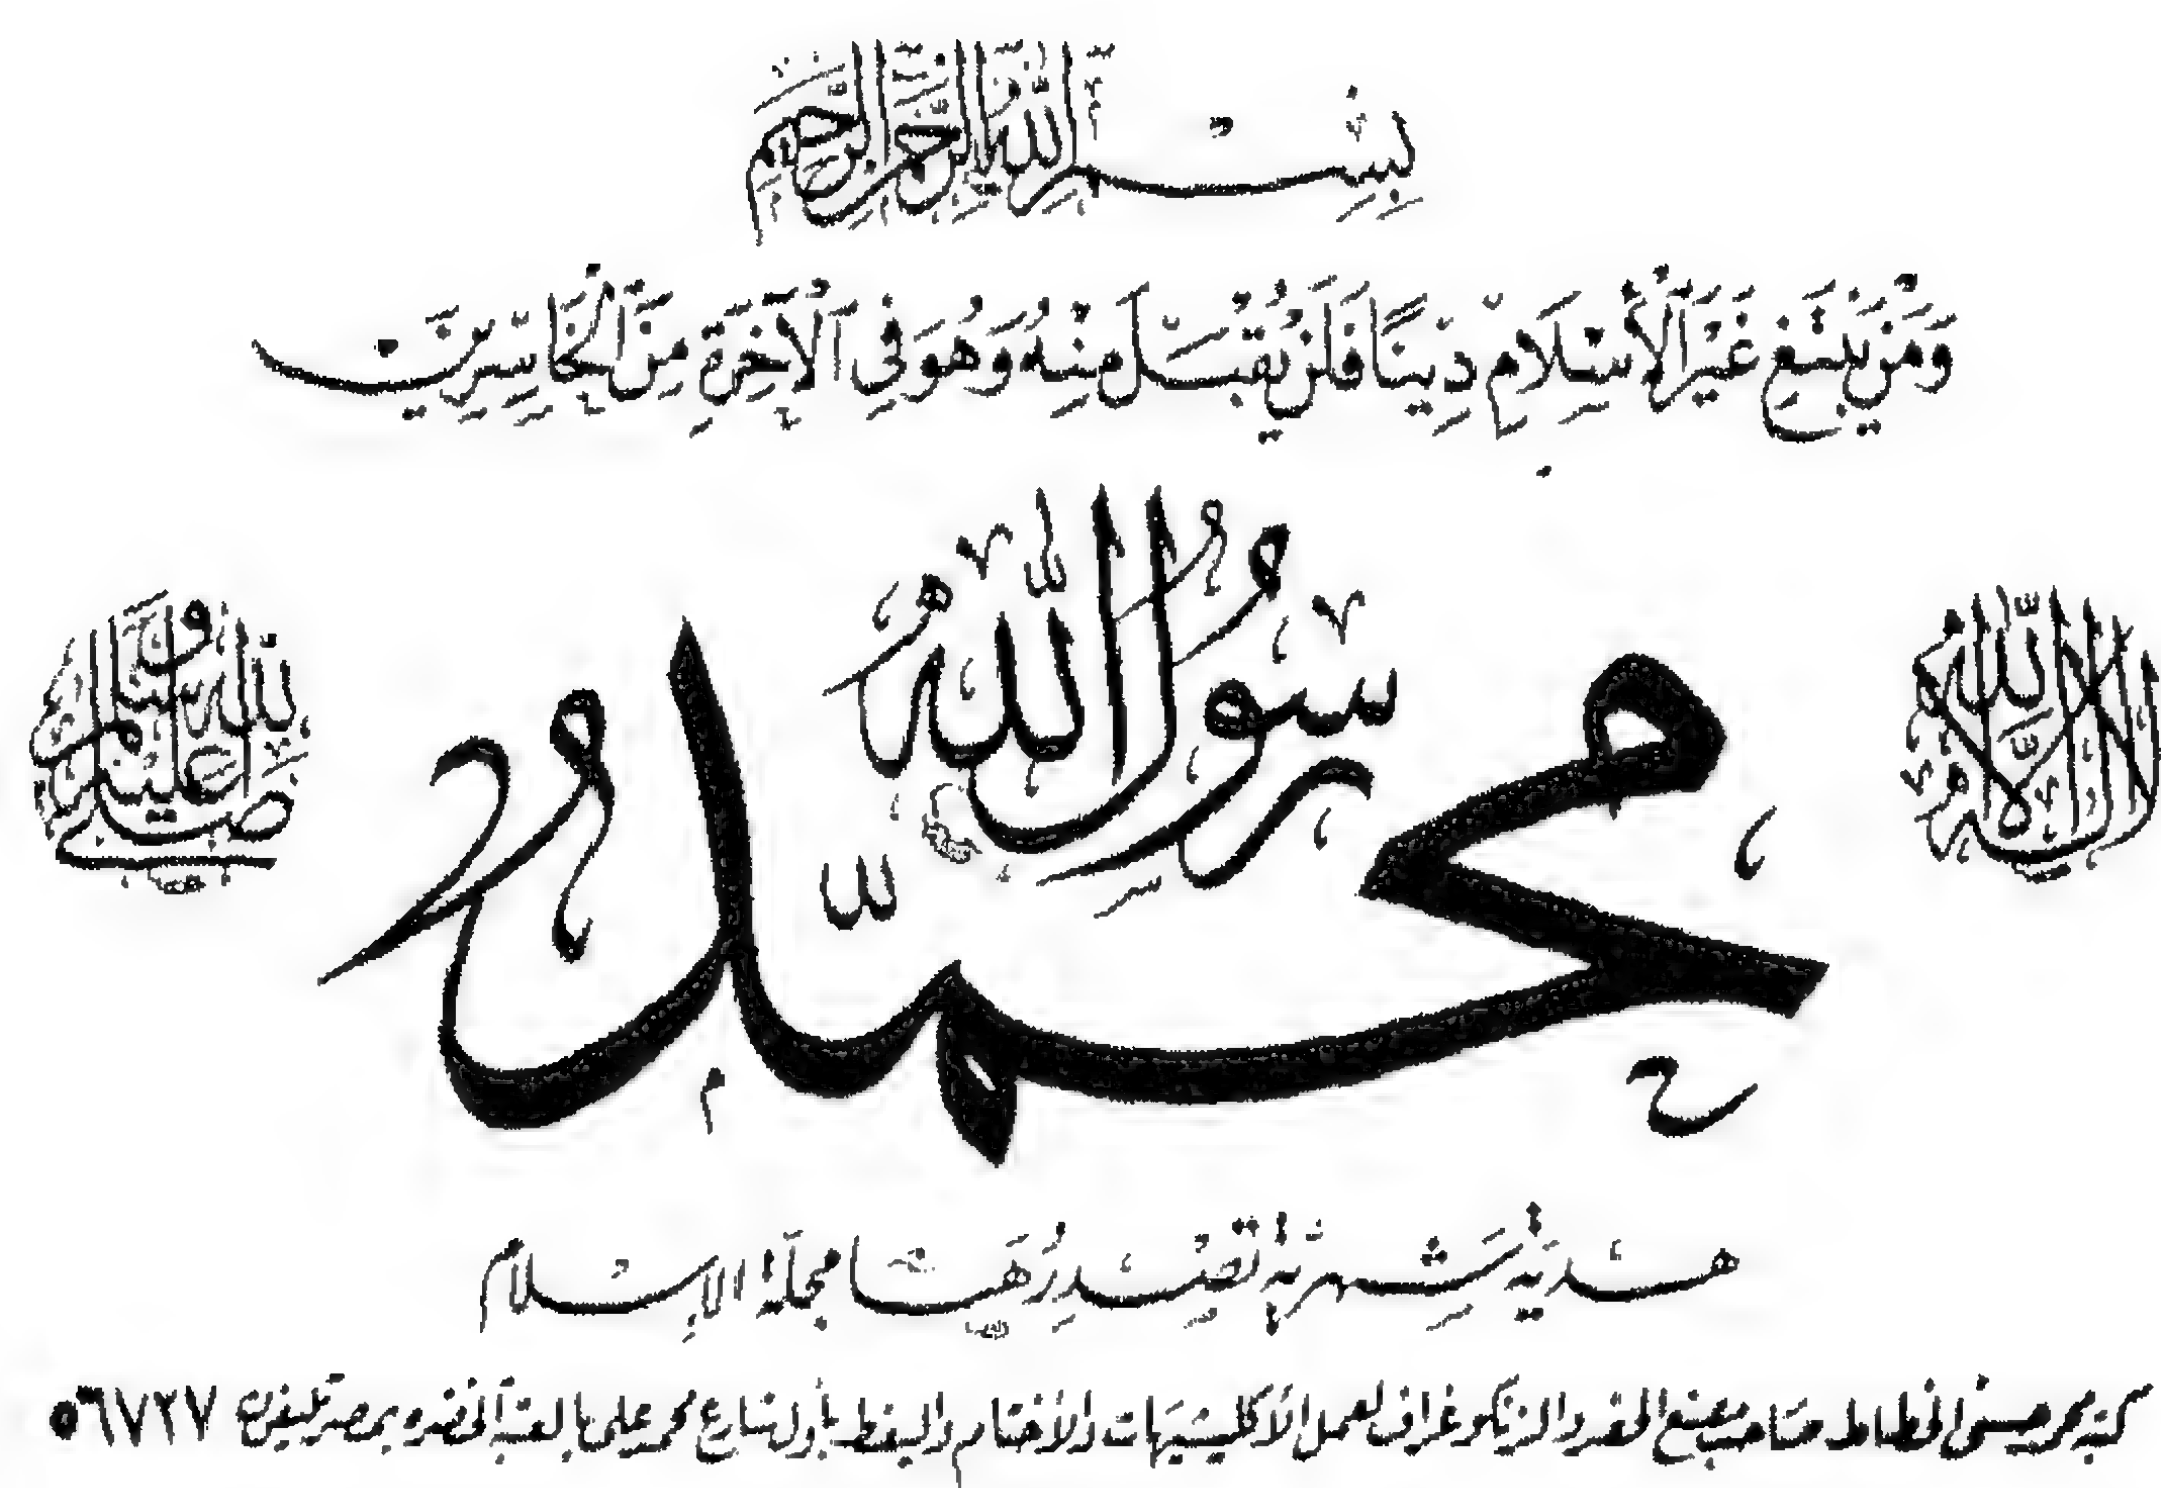 بسم الله الرحمن الرحيم
وَمَنْ يَبْتَغِ غَيْرَ الْأِسْلَامِ دِينًا فَلَنْ يُقْبَلَ مِنْهُ وَهُوَ فِي الْآخِرَةِ مِنَ الْخَاسِرِينَ
لا إله إلا الله
محمد رسول الله
صلى الله عليه وسلم
هدية شهرية تصدرها مجلة الإسلام
كتبه محمد حسني الخطاط صاحب مصنع الحفر والزنكوغراف لعمل الأكليشيهات والأختام واليفط بأول شارع محمد علي بالعتبة الخضره بمصر تليفون ٥٦٧٢٧